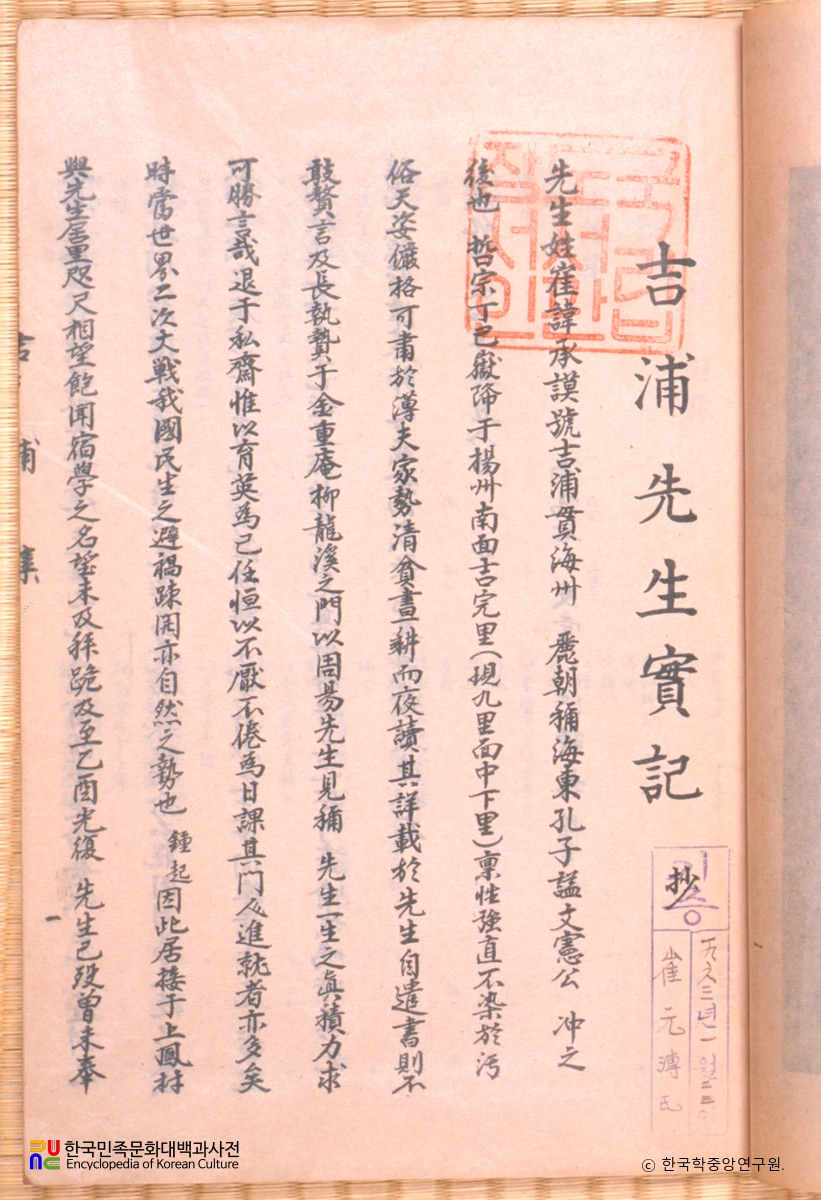 吉浦先生實記
抄
先生姓崔諱承謨號吉浦貫海州 麗朝稱海東孔子諡文憲公 冲之
後也 哲宗丁巳嶽降于楊州南面吉完里(現九里面中下里)稟性强直不染於汚
俗天姿儼格可肅於薄夫家勢清貧晝耕而夜讀其詳載於先生自遣書則不
敢贅言及長執贄于金重庵柳龍溪之門以周易先生見稱 先生一生之眞積力求
可勝言哉退于私齋惟以育英為己任恒以不厭不倦為日課其門人進就者亦多矣
時當世界二次大戰我國民生之避禍疎開亦自然之勢也 鍾起因此居接于上鳳村
與先生居里咫尺相望飽聞宿學之名望未及拜跪及至乙酉光復 先生已歿曾未奉
국립
도서관
장서인
기증
年 一월
崔元溥氏
吉浦集
한국민족문화대백과사전
Encyclopedia of Korean Culture
ⓒ 한국학중앙연구원.